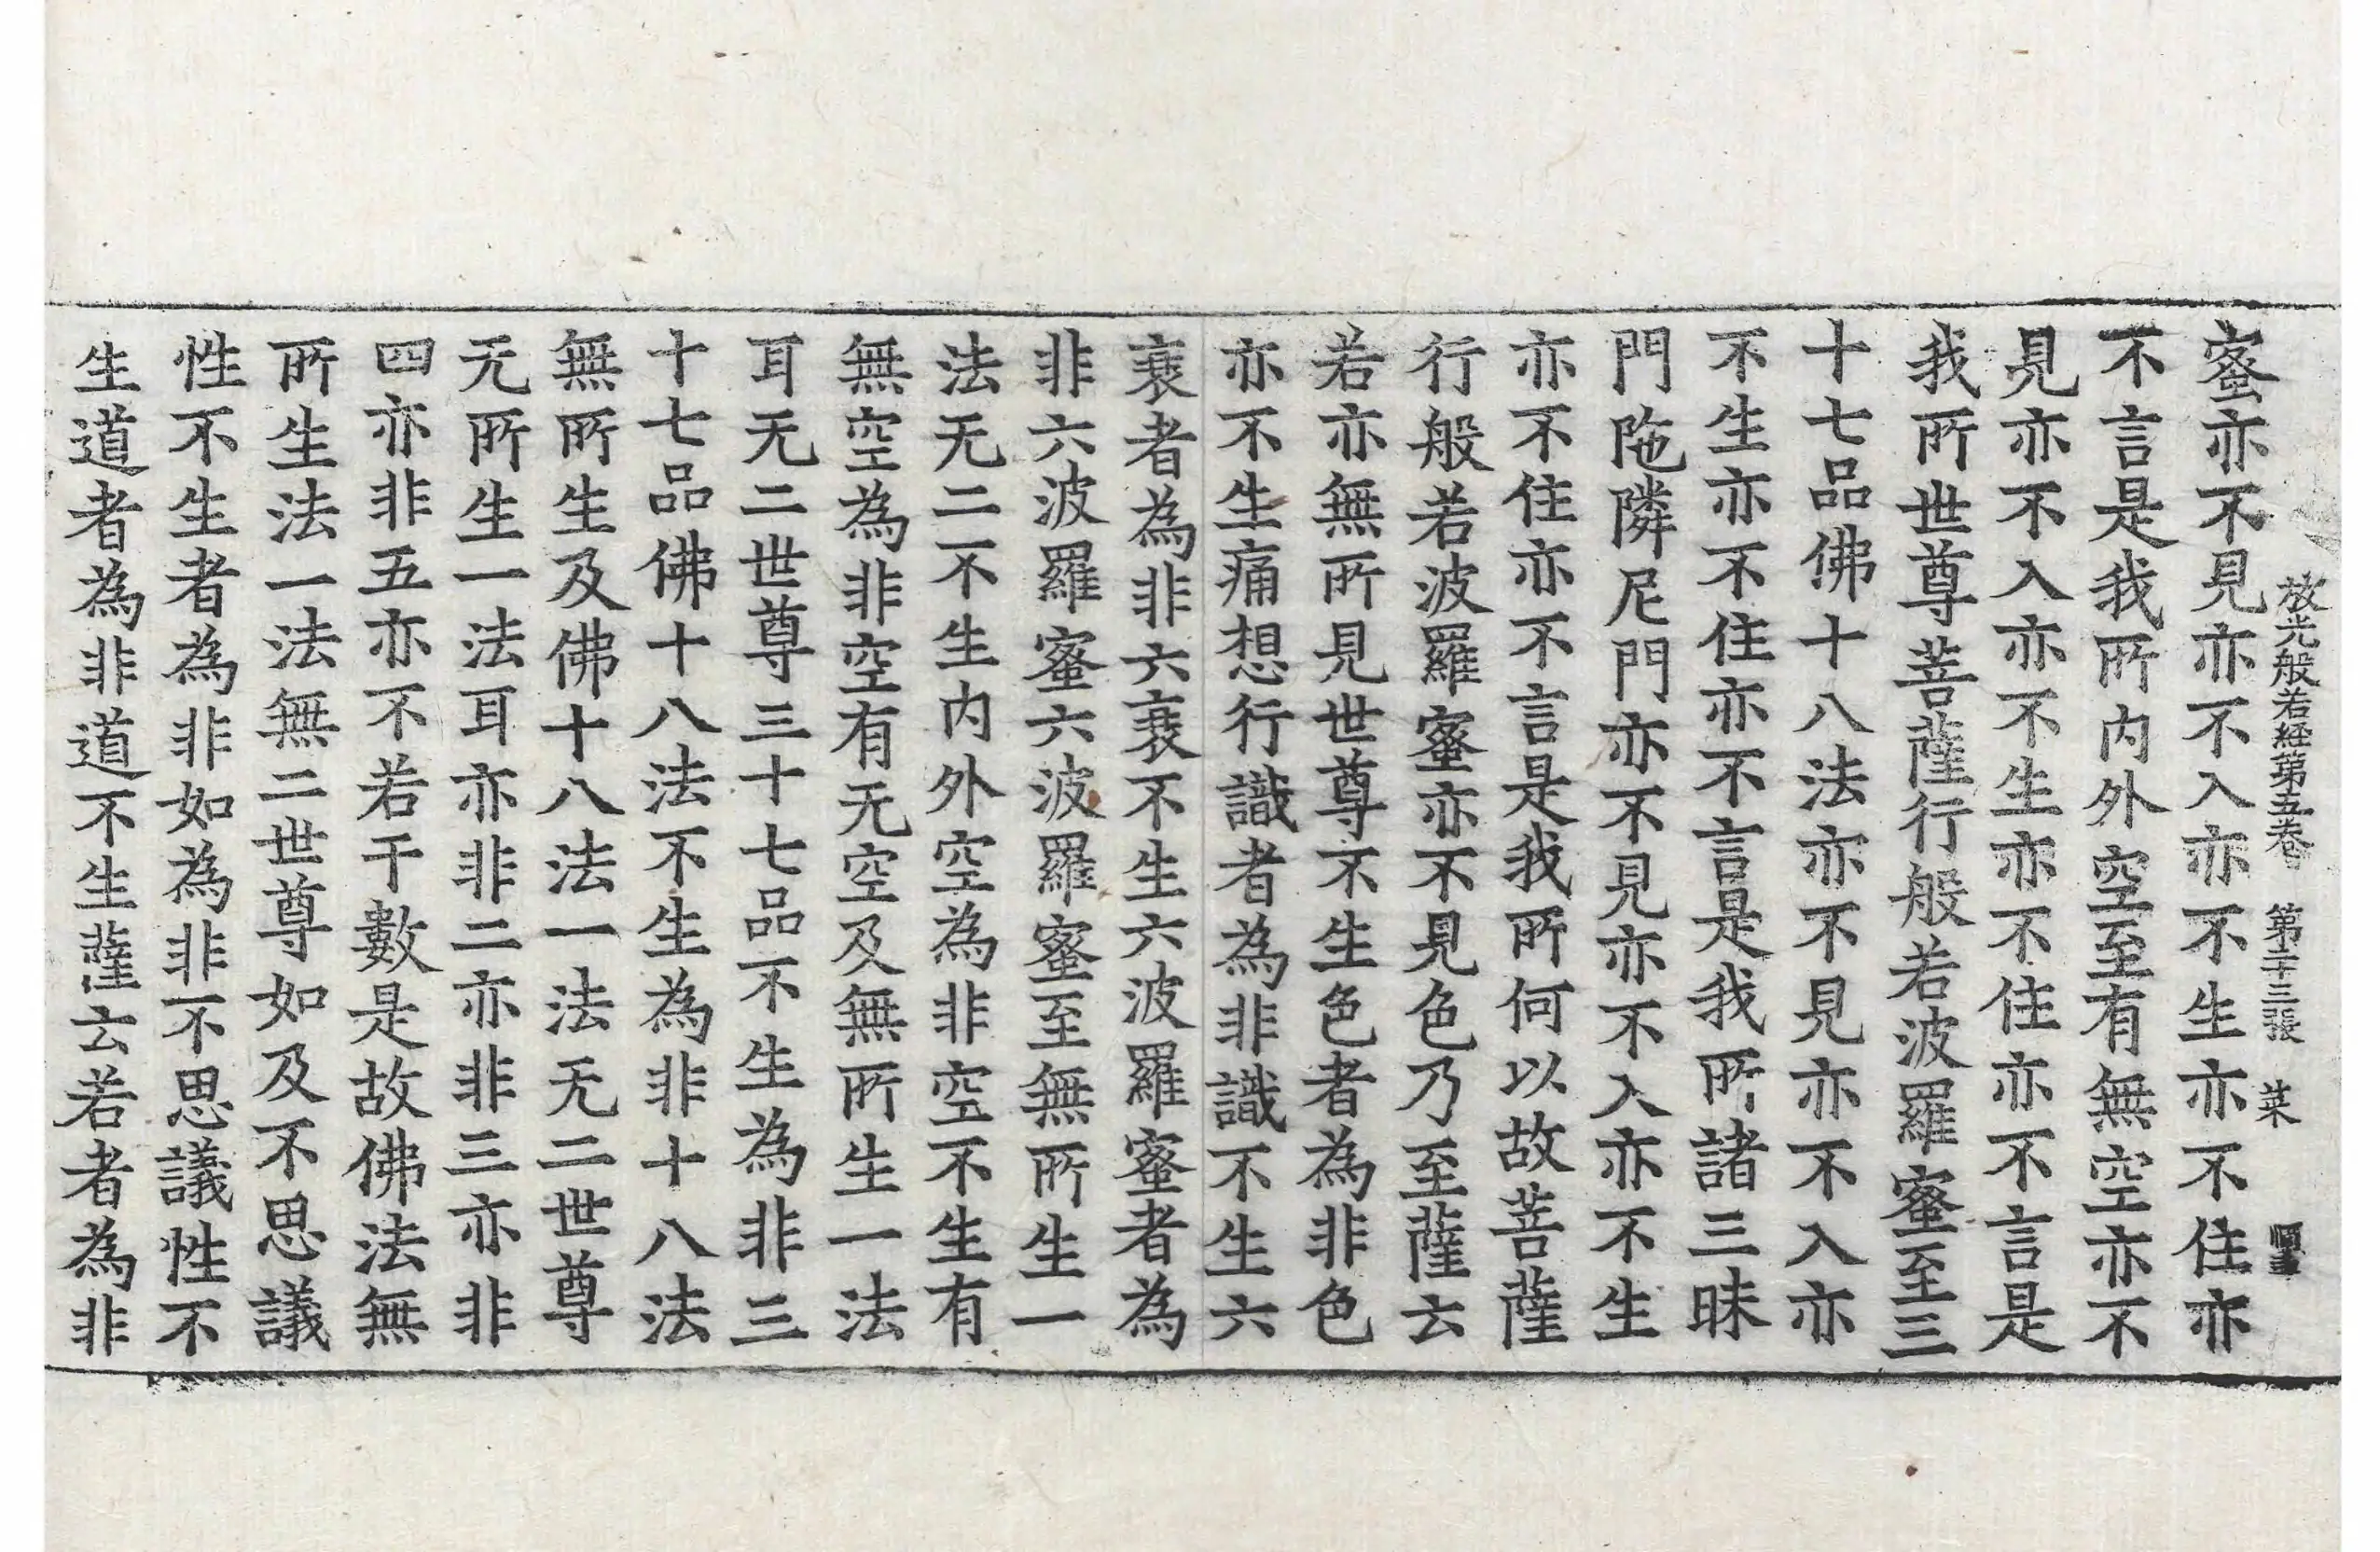 放光般若経第五卷　第二十三張　菜
蜜亦不見亦不入亦不生亦不住亦
不言是我所内外空至有無空亦不
見亦不入亦不生亦不住亦不言是
我所世尊菩薩行般若波羅蜜至三
十七品佛十八法亦不見亦不入亦
不生亦不住亦不言是我所諸三昧
門陁隣尼門亦不見亦不入亦不生
亦不住亦不言是我所何以故菩薩
行般若波羅蜜亦不見色乃至薩云
若亦無所見世尊不生色者為非色
亦不生痛想行識者為非識不生六
衰者為非六衰不生六波羅蜜者為
非六波羅蜜六波羅蜜至無所生一
法无二不生内外空為非空不生有
無空為非空有无空及無所生一法
耳无二世尊三十七品不生為非三
十七品佛十八法不生為非十八法
無所生及佛十八法一法无二世尊
无所生一法耳亦非二亦非三亦非
四亦非五亦不若干數是故佛法無
所生法一法無二世尊如及不思議
性不生者為非如為非不思議性不
生道者為非道不生薩云若者為非